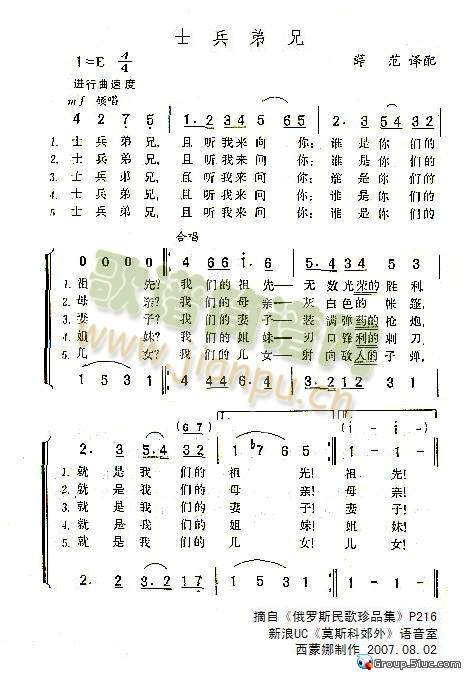 士兵弟兄
1=E 4/4
薛 范 译配
进行曲速度
mf 领唱
4 2 7 5 | 1. 2 34 5 65 | 2. 5 34 32
1. 士兵弟兄, 且听我来问 你: 谁是你们的
2. 士兵弟兄, 且听我来问 你: 谁是你们的
3. 士兵弟兄, 且听我来问 你: 谁是你们的
4. 士兵弟兄, 且听我来问 你: 谁是你们的
5. 士兵弟兄, 且听我来问 你: 谁是你们的
合唱
0 0 0 0
1. 祖 先? 我们的祖先—— 无数光荣的胜利
2. 母 亲? 我们的母亲—— 灰白色的帐篷
3. 妻 子? 我们的妻子—— 装满弹药的枪炮
4. 姐 妹? 我们的姐妹—— 刃口锋利的刺刀
5. 儿 女? 我们的儿女—— 射向敌人的子弹
1 5 3 1 | 4 4 6 4. 6 | 3. 2 1 2 1 2 | 3 1
(6 7) (i – i –)
2. 3 5.4 32 | 1 7 6 5 | 1 – 1 –
1. 就是我们的 祖 先! 祖 先!
2. 就是我们的 母 亲! 母 亲!
3. 就是我们的 妻 子! 妻 子!
4. 就是我们的 姐 妹! 姐 妹!
5. 就是我们的 儿 女! 儿 女!
摘自《俄罗斯民歌珍品集》P216
新浪UC《莫斯科郊外》语音室
西蒙娜制作 2007.08.02
歌谱简谱网
www.jianpu.cn
Group.51uc.com